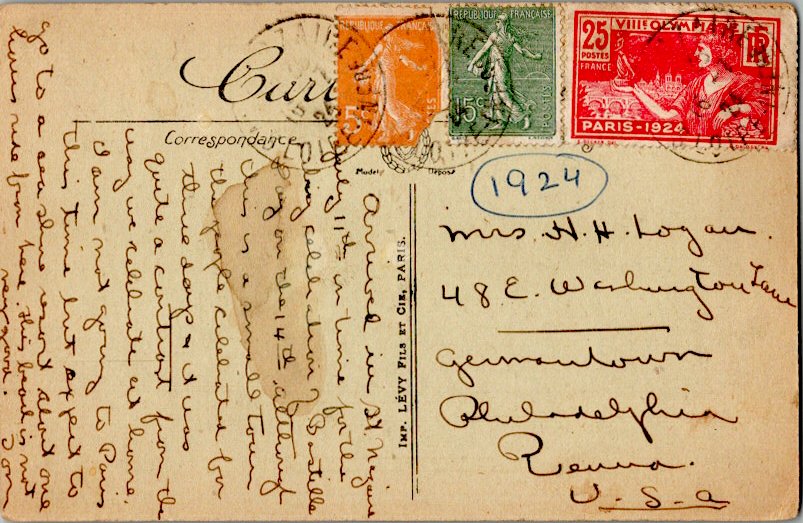 Carte
Correspondance
RÉPUBLIQUE FRANÇAISE
5c
RÉPUBLIQUE FRANÇAISE
15c
POSTES
25
POSTES
FRANCE
VIIIe OLYMPIADE
RF
PARIS-1924
Modèle Déposé
1924
IMP. LÉVY FILS ET CIE, PARIS.
Arrived in St. Nazaire
July 11th in time for the
big celebration of Bastille
Day on the 14th. Although
this is a small town
the people celebrated for
three days & it was
quite a contrast from the
way we celebrate at home.
I am not going to Paris
this time but expect to
go to a sea shore resort about one
hours ride from here. This beach is not
very good.
Mrs. H. H. Logan.
48 E. Washington Lane
Germantown
Philadelphia
Penna.
U.S.A